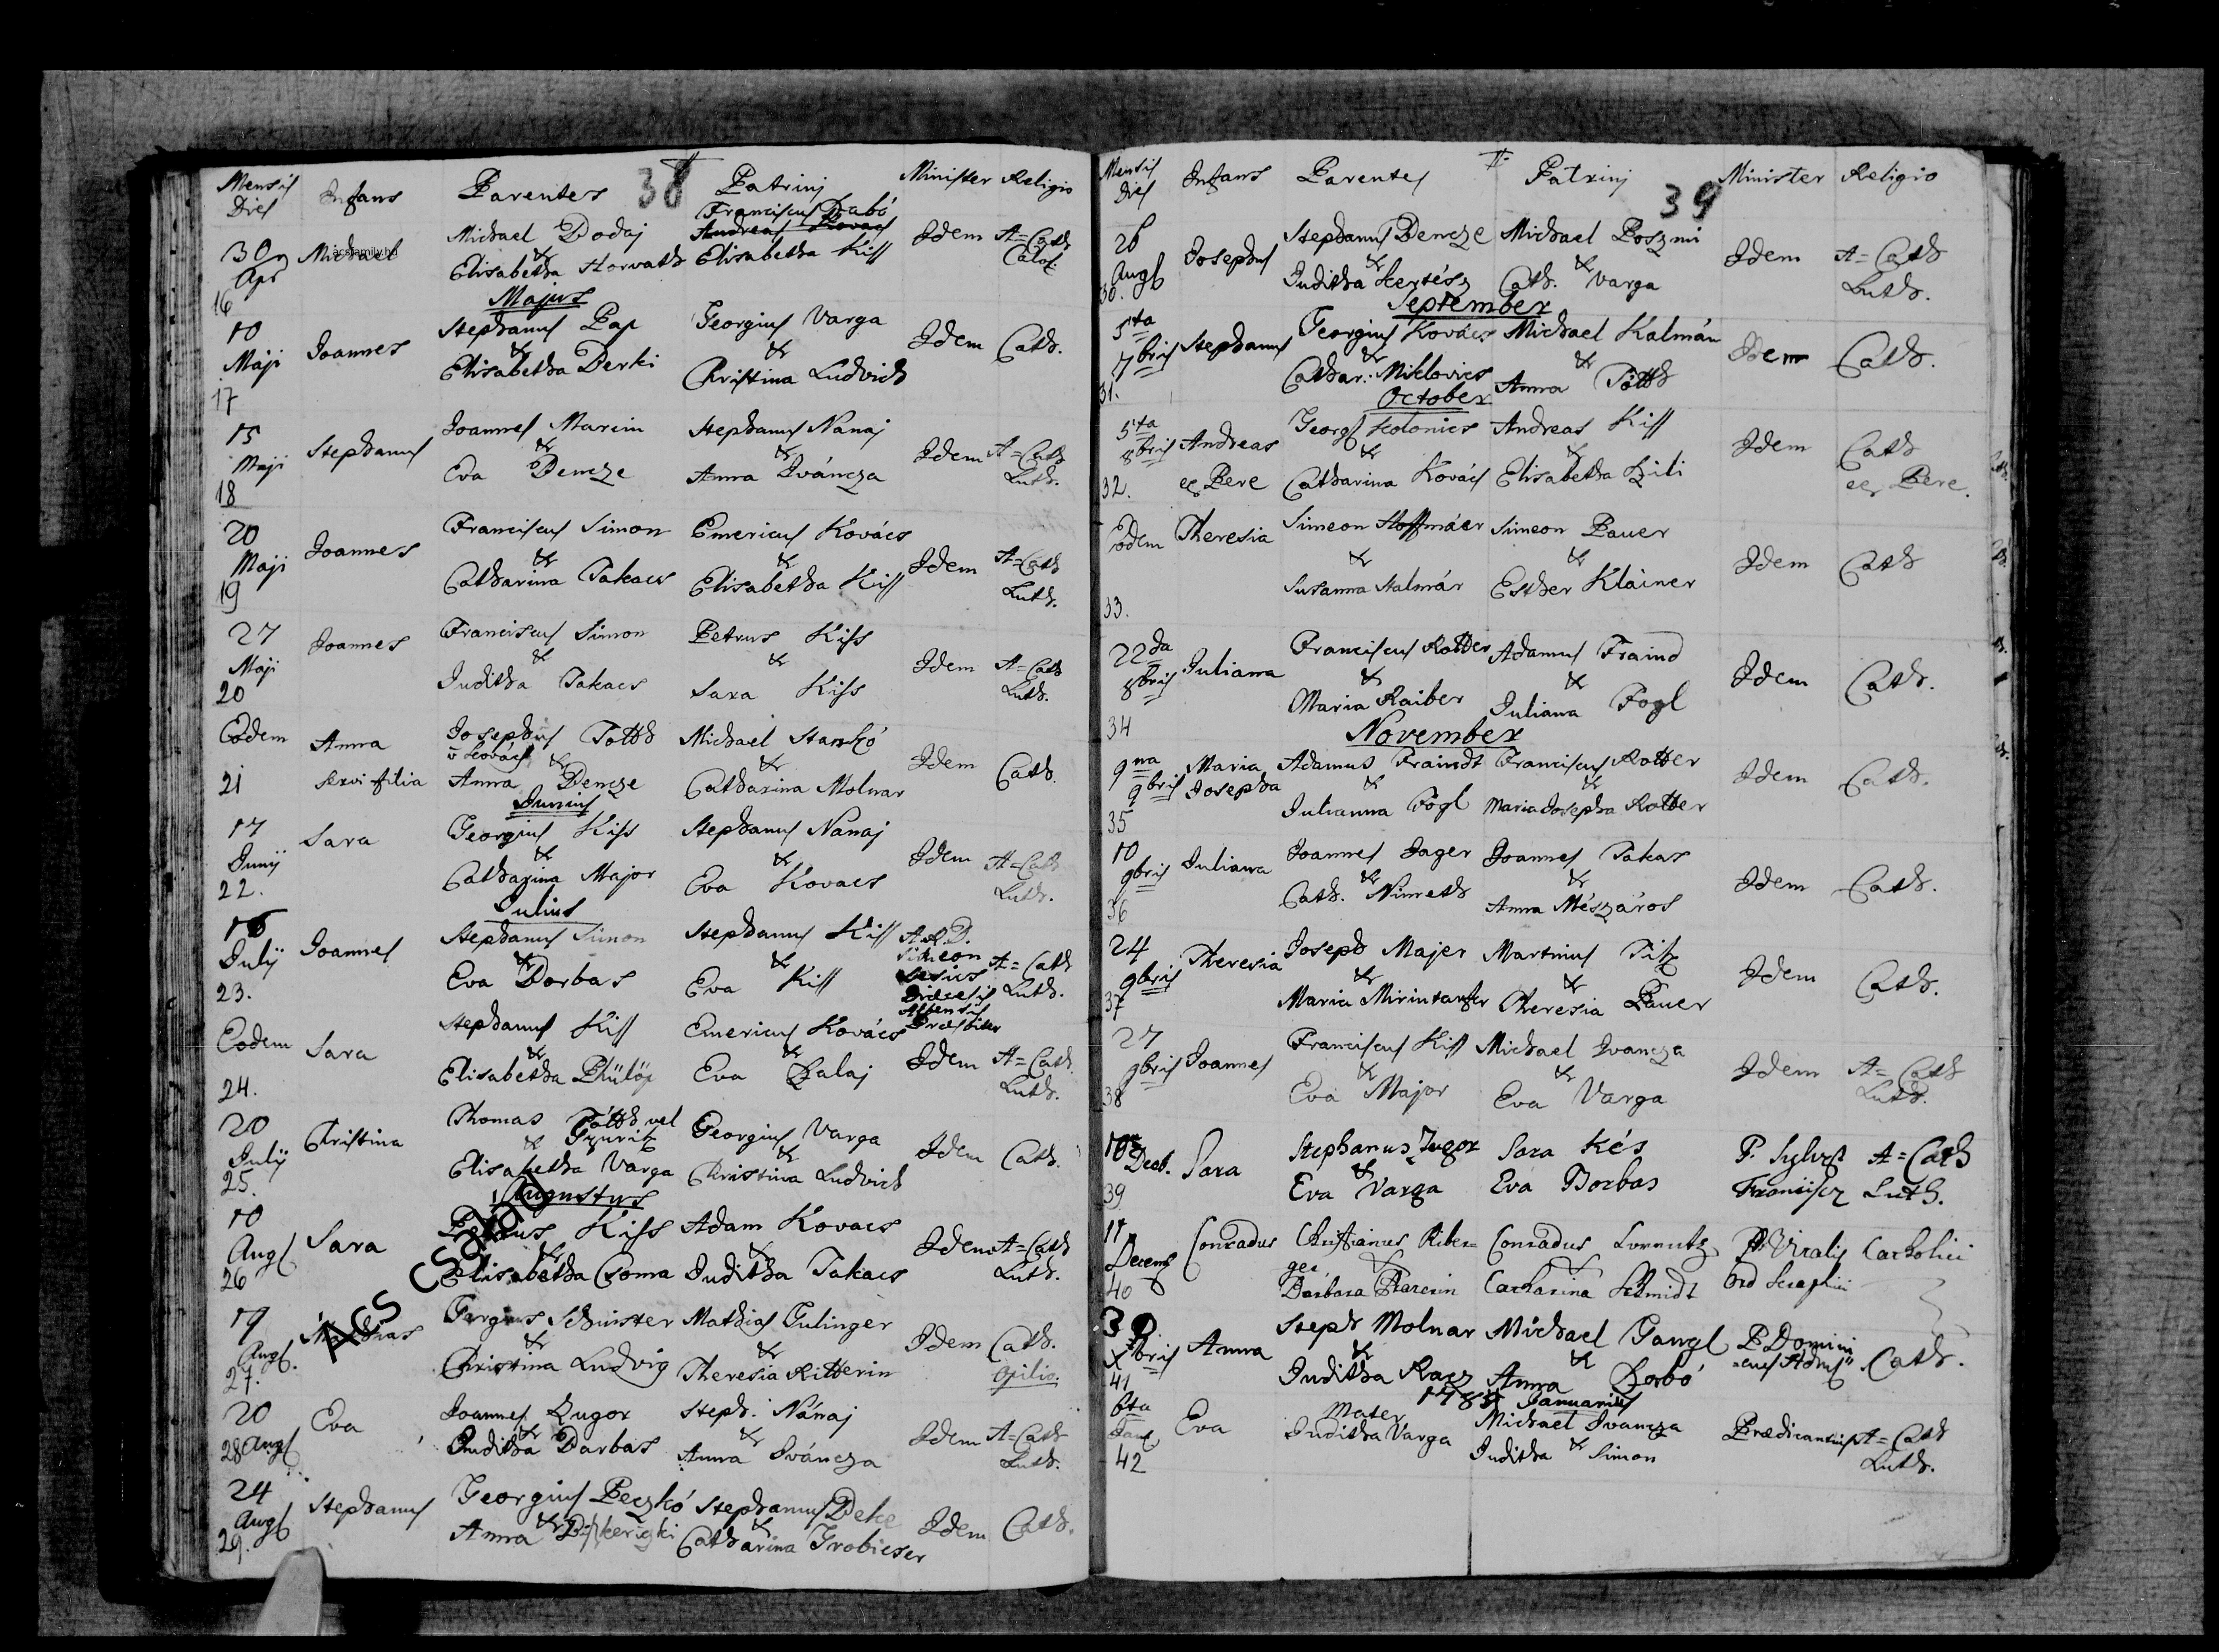 38
Mensis Dies Infans Parentes Patrinj Minister Religio
30 Apr Michael
Michael Dodaj & Elisabetha Horvath
Franciscus Szabó
Andreas Kovacs
Elisabetha Kiss
Idem A=Cath Calv.
acsfamily.hu
16
Majus
10 Maji Joannes
Stephanus Pap & Elisabetha Derki
Georgius Varga & Christina Ludvich
Idem Cath.
17
15 Maji Stephanus
Joannes Marcin & Eva Bencze
Stephanus Nanaj & Anna Iváncza
Idem A=Cath Luth.
18
20 Maji Joannes
Franciscus Simon & Catharina Takacs
Emericus Kovács & Elisabetha Kiss
Idem A=Cath Luth.
19
27 Maji Joannes
Franciscus Simon & Juditha Takacs
Petrus Kiss & Sara Kiss
Idem A=Cath Luth.
20
Eodem Anna
servi filia
Josephus Totth
v Kovács & Anna Bencze
Michael Stankó & Catharina Molnar
Idem Cath.
21
Junius
17 Junij Sara
Georgius Kiss & Catharina Major
Stephanus Nanaj & Eva Kovacs
Idem A=Cath Luth.
22.
Julius
16 Julij Joannes
Stephanus Simon & Eva Borbas
Stephanus Kiss & Eva Kiss
A.R.D. Simeon
A=Cath Luth.
23.
Eodem Sara
Stephanus Kiss & Elisabetha Phülöp
Emericus Kovács & Eva Szalaj
Idem A=Cath. Luth.
24.
20 Julij Christina
Thomas Totth vel
& Elisabetha Varga
Georgius Varga & Christina Ludvich
Idem Cath.
25.
Augustus
10 Aug Sara
Petrus Kiss & Elisabetha Csoma
Adam Kovacs & Juditha Takacs
Idem A=Cath Luth.
26
Ács Család
19 Aug.
Schuister & Christina Ludvig
Mathias Gulinger & Theresia Ritterin
Idem Cath. Opilio.
27.
20 Aug Eva
Joannes Zugor & Juditha Barbas
Steph. Nánaj & Anna Iváncza
Idem A=Cath Luth.
28
24 Aug Stephanus
Georgius Peczkó & Anna
Stephanus Deke & Catharina Grobieser
Idem Cath.
29.
39
Mensis Dies Infans Parentes Patrinj Minister Religio
26 Aug Josephus
Stephanus Bencze & Juditha Kertész
Michael Poszmi & Cath. Varga
Idem A=Cath Luth.
30.
September
5ta 7bris Stephanus
Georgius Kovács & Cathar. Miklovics
Michael Kalmán & Anna Totth
Idem Cath.
31.
October
5ta 8bris Andreas
ex Bere
Georg Kolonics & Catharina Kovács
Andreas Kiss & Elisabetha Szili
Idem Cath ex Bere.
32.
Eodem Theresia
Simeon Hoffmáer & Susanna Halmár
Simeon Bauer & Esther Klainer
Idem Cath
33.
22da 8bris Juliana
Franciscus Rotter & Maria Raiber
Adamus Fraind & Juliana Fogl
Idem Cath.
34
November
9na 9bris Maria Josepha
Adamus Fraindt & Julianna Fogl
Franciscus Rotter & Maria Josepha Rotter
Idem Cath.
35
10 9bris Juliana
Joannes Jager & Cath. Nimeth
Joannes Takas & Anna Mészáros
Idem Cath.
36
24 9bris Theresia
Joseph Majer & Maria
Martinus Titz & Theresia Bauer
Idem Cath.
37
27 9bris Joannes
Franciscus Kiss & Eva Major
Michael Ivancza & Eva Varga
Idem A=Cath Luth.
38
10 Decb. Sara
Stephanus Zugor & Eva Varga
Sara Kés
Eva Borbas
P. Sylvest Francisc
A=Cath Luth.
39
11 Decemb Conradus
Christianus Riber=ger
Barbara
Conradus Lorentz
Catharina Schmidt
P. Vitalis Ord Seraphici
Catholici
40
30 Xbris Anna
Steph Molnar & Juditha Racz
Michael Gangl & Anna Szabó
P. Domini
Cath.
41
1785 Januarius
6ta Jan Eva
Mater Juditha Varga
Michael Ivancza & Juditha Simon
Prædicantius
A=Cath Luth.
42